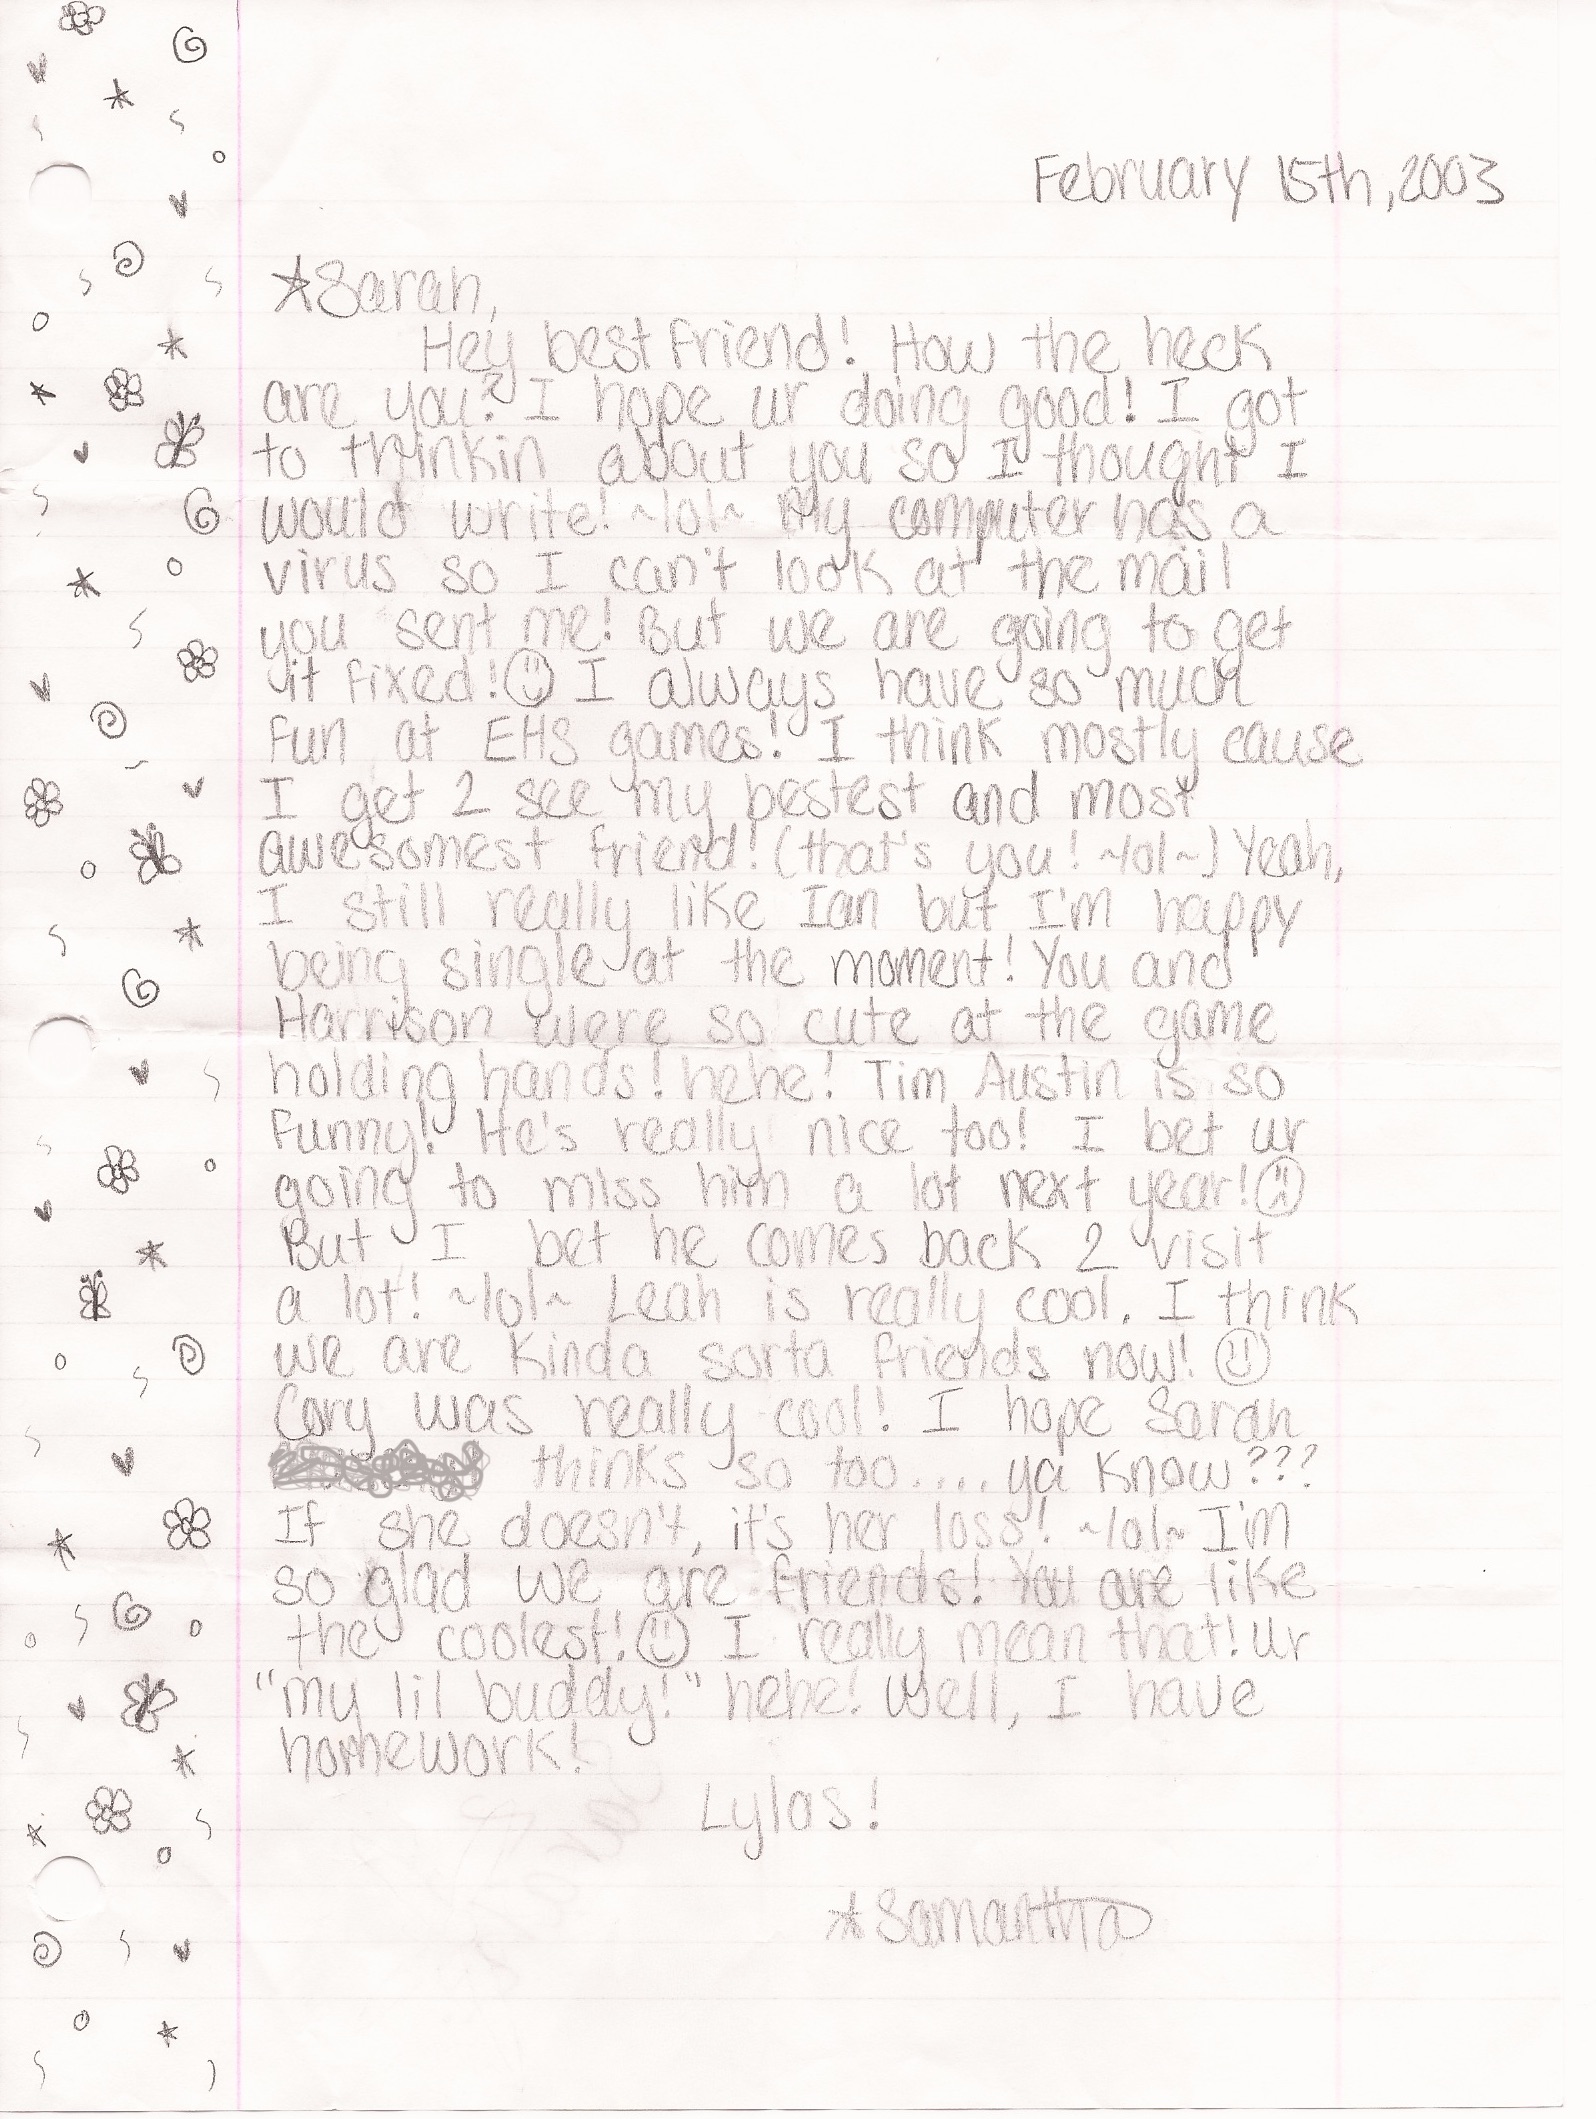 February 15th, 2003
☆Sarah,
Hey best friend! How the heck
are you? I hope ur doing good! I got
to thinkin about you so I thought I
would write! ~lol~ My computer has a
virus so I can't look at the mail
you sent me! But we are going to get
it fixed! ☺ I always have so much
fun at EHS games! I think mostly cause
I get 2 see my bestest and most
awesomest friend! (that's you! ~lol~) Yeah,
I still really like Ian but I'm happy
being single at the moment! You and
Harrison were so cute at the game
holding hands! hehe! Tim Austin is so
funny! He's really nice too! I bet ur
going to miss him a lot next year! ☹
But I bet he comes back 2 visit
a lot! ~lol~ Leah is really cool. I think
we are kinda sorta friends now! ☺
Cory was really cool! I hope Sarah
thinks so too.... ya know???
If she doesn't, it's her loss! ~lol~ I'm
so glad we are friends! You are like
the coolest! ☺ I really mean that! Ur
"my lil buddy!" hehe! Well, I have
homework!
Lylas!
☆Samantha